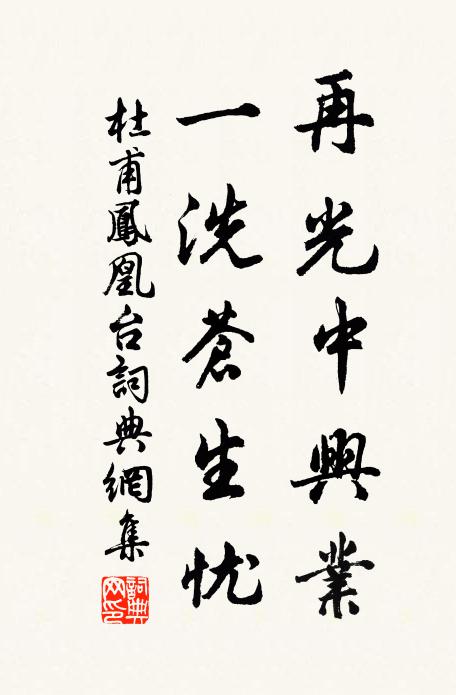 再光中興業
一洗蒼生忧
杜甫鳳凰台詞典網集
詞典网印